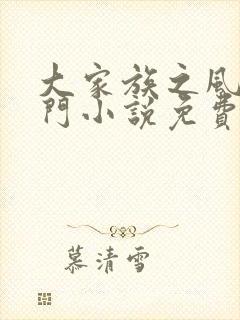 大家族之風
門小說免費
慕清雪